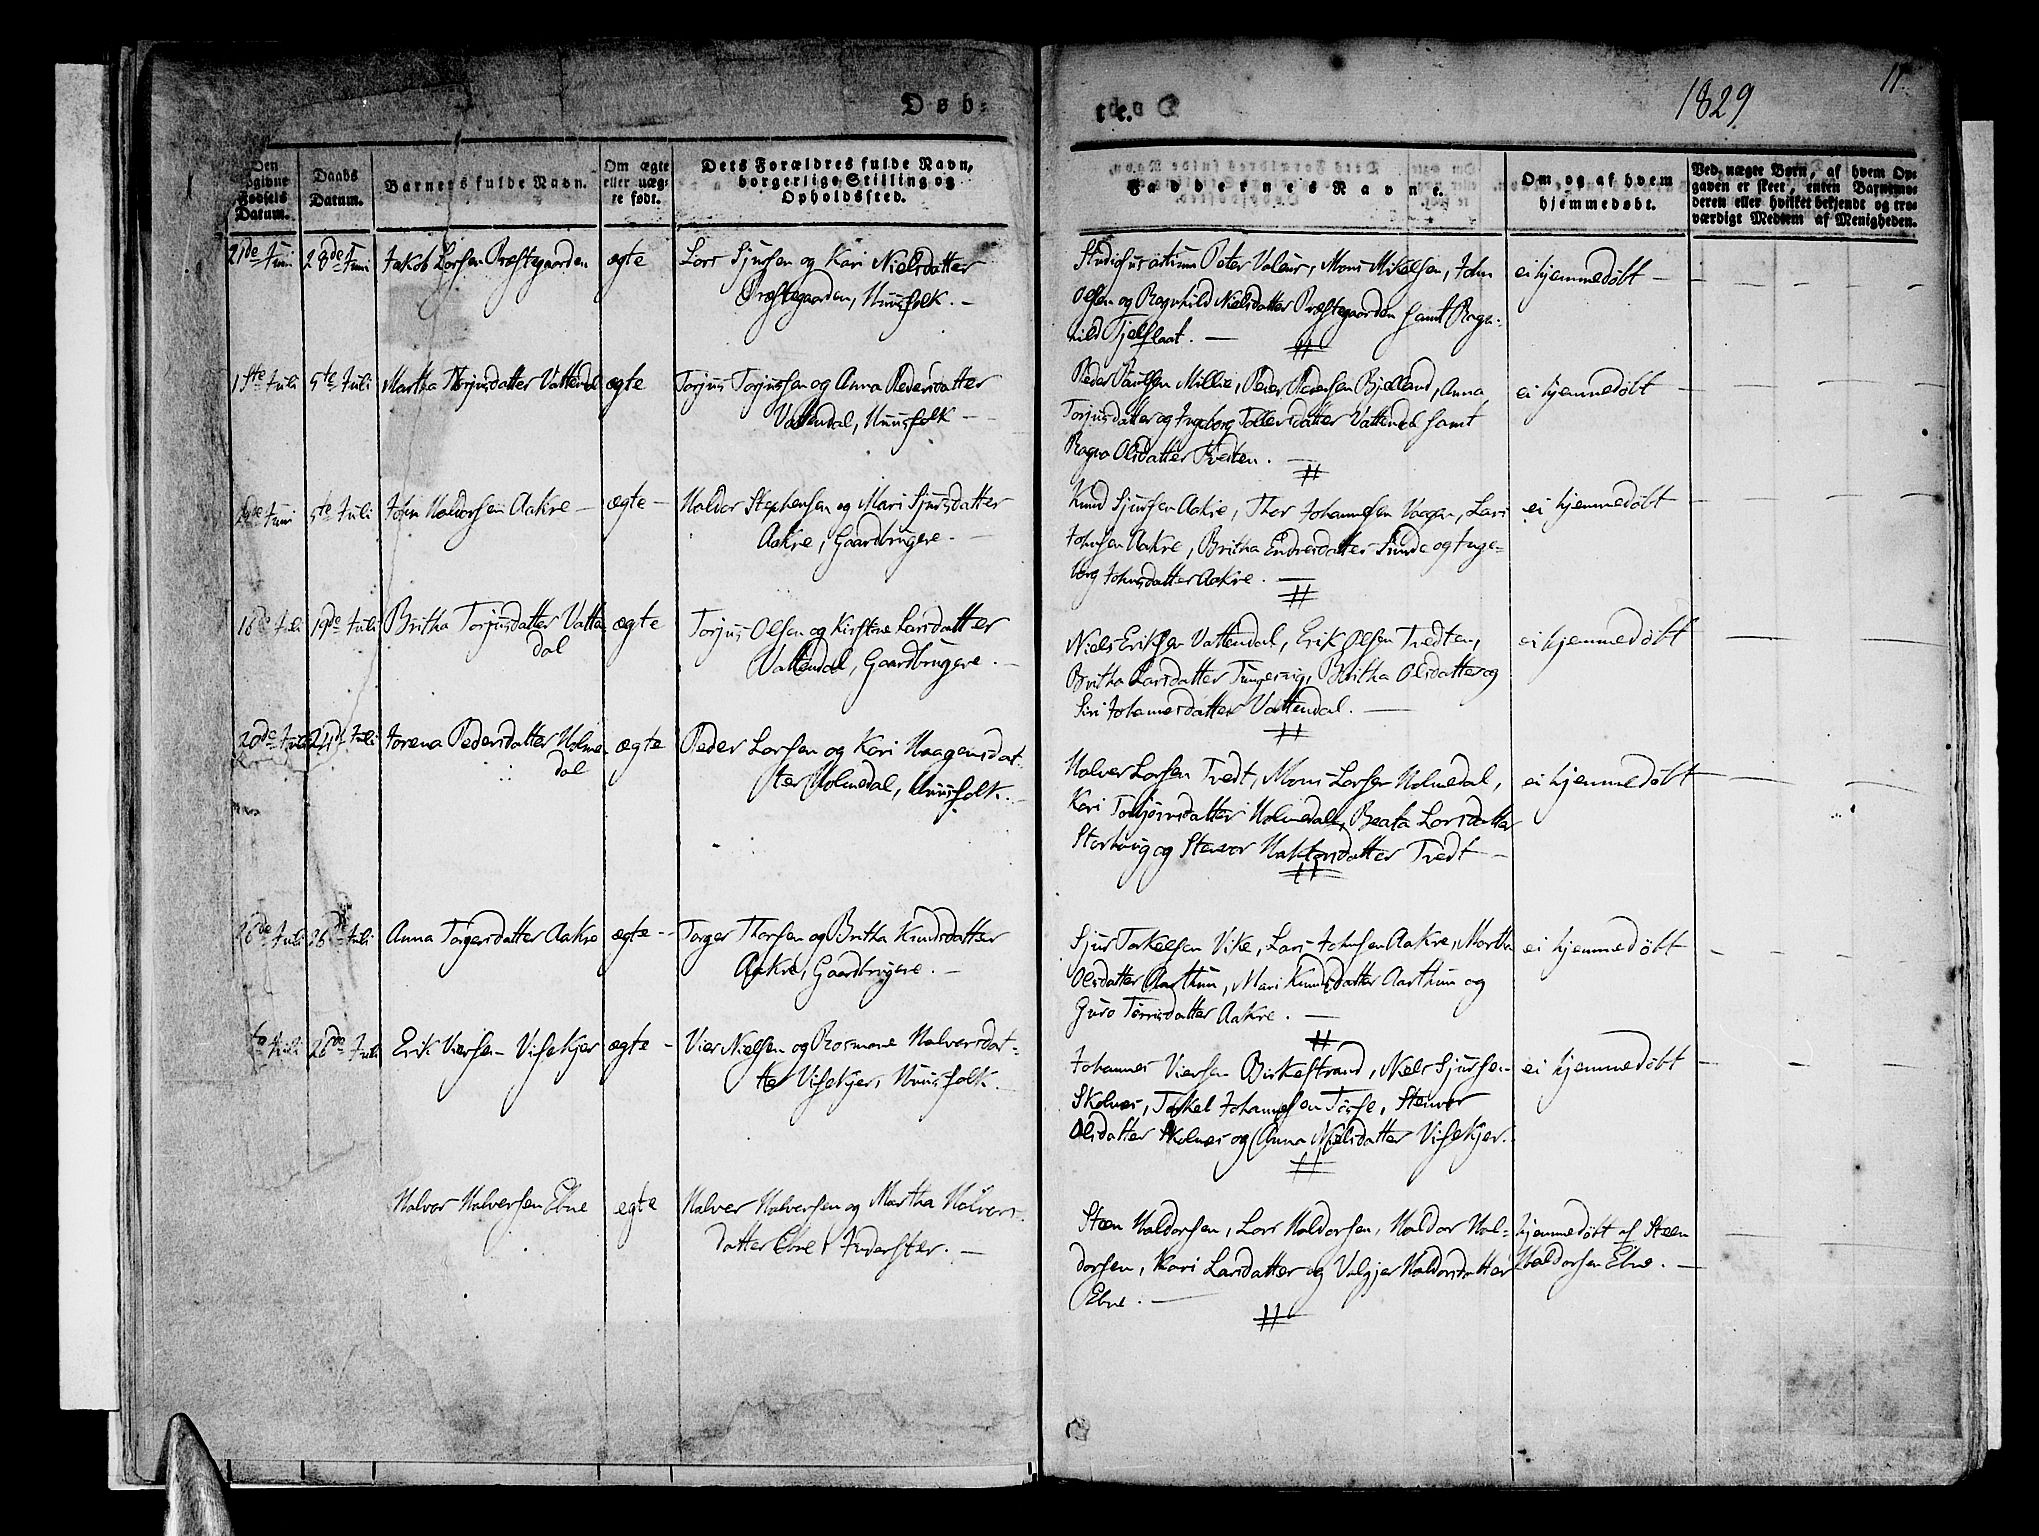 Døb-
te.
1829
11
Den opgivne Fødsels Datum.
Daabs Datum.
Barnets fulde Navn.
Om ægte eller uægte født.
Dets Forældres fulde Navn, borgerlige Stilling og Opholdssted.
Faddernes Navne.
Om og af hvem hjemmedøbt.
Ved uægte Børn, af hvem Opgaven er skeet, enten Barnemoderen eller hvilket bekjendt og troværdigt Medlem af Menigheden.
21de Juni 28de Juni Jakob Larsen Præstegaarden ægte Lars Sjursen og Kari Nielsdatter
Præstegaarden, Huusfolk. –
Peter Valeur, Mons Mikelsen, John ei hjemmedøbt –
Olsen og Ragnhild Nielsdatter Præstegaarden samt Ragn-
hild Tjelflaat. –
1ste Juli 5te Juli Martha Torjusdatter Vattendal ægte Torjus Torjussen og Anna Pedersdatter
Vattendal, Huusfolk –
Peder Paulsen Millie, Peder Pedersen Bjelland, Anna ei hjemmedøbt –
Torjusdatter og Ingeborg Tollevsdatter Vattendal samt
Ragna Olsdatter Tveiten. –
Juni 5te Juli John Haldorsen Aakre – ægte – Haldor Stephensen og Mari Sjursdatter
Aakre, Gaardbrugere. –
Knud Sjursen Aakre, Thor Johannesen Vaagen, Lars ei hjemmedøbt
Johnsen Aakre, Britha Endresdatter Sunde og Inge-
borg Johnsdatter Aakre. –
18de Juli 19de Juli Britha Torjusdatter Vatten ægte Torjus Olsen og Kirstine Larsdatter
dal Vattendal, Gaardbrugere. –
Niels Eriksen Vattendal, Erik Olsen Tvedten, ei hjemmedøbt
Britha Larsdatter Tungesvig, Britha Olsdatter og
Siri Johannesdatter Vattendal. –
20de Juli 24de Juli Torena Pedersdatter Holme- ægte Peder Larsen og Kari Haagensdat-
dal ter Holmedal, Huusfolk. –
Halver Larsen Tvedt, Mons Larsen Holmedal, ei hjemmedøbt
Kari Torbjørnsdatter Holmedal, Beata Larsdatter
Storhoug og Stenvor Tvedt –
26de Juli 26de Juli Anna Torgersdatter Aakre ægte – Torger Thorsen og Britha Knudsdatter
Aakre, Gaardbrugere. –
Sjur Torkelsen Vike, Lars Johnsen Aakre, Martha ei hjemmedøbt
Olsdatter Aarthun, Mari Knudsdatter Aarthun og
Guro Tørrisdatter Aakre. –
Juli 26de Juli Erik Viersen Visekjer ægte – Vier Nielsen og Rosmone Halversdat-
ter Visekjer, Huusfolk.
Johannes Viersen Birkestrand, Niels Sjursen ei hjemmedøbt
Skolnes, Torkel Johannesen Tøsse, Steinvor
Olsdatter Skolnes og Anna Nielsdatter Visekjer.
Halvor Halversen Ebne egte Halver Halversen og Martha Halvors-
datter Ebne Inderster. –
Steen Haldorsen, Lars Haldorsen, Haldor Hal- hjemmedøbt af Steen
dorsen, Kari Larsdatter og Valgjer Haldorsdatter Haldorsen Ebne. –
Ebne. –